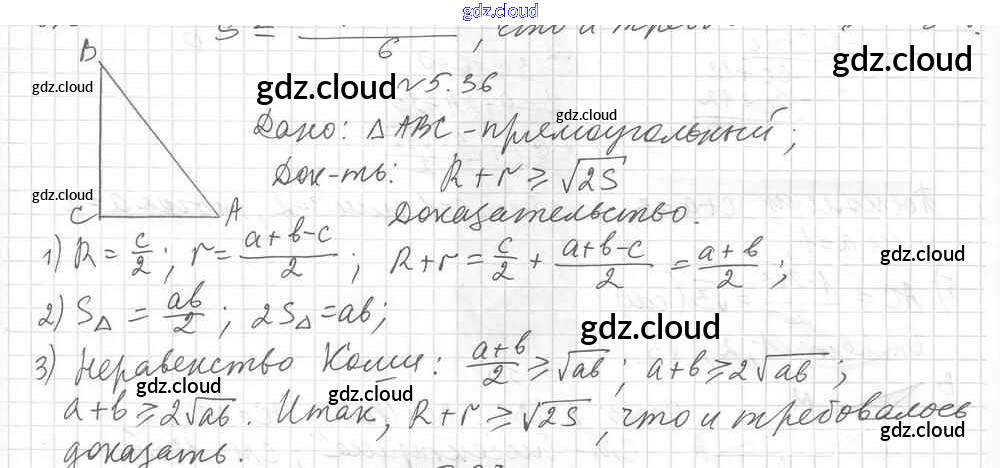 gdz.cloud
S = ───
6 , что и треб
B
gdz.cloud
gdz.cloud
№5.36
gdz.cloud
gdz.cloud
Дано: △ABC - прямоугольный;
Док-ть: R+r ≥ √2S
gdz.cloud
C A
Доказательство.
1) R = c/2; r = (a+b-c)/2; R+r = c/2 + (a+b-c)/2 = (a+b)/2;
gdz.cloud
2) S△ = ab/2; 2S△ = ab;
gdz.cloud
3) Неравенство Коши: (a+b)/2 ≥ √ab; a+b ≥ 2√ab;
gdz.cloud
gdz.cloud
a+b ≥ 2√ab. Итак, R+r ≥ √2S, что и требовалось
gdz.cloud
доказать.